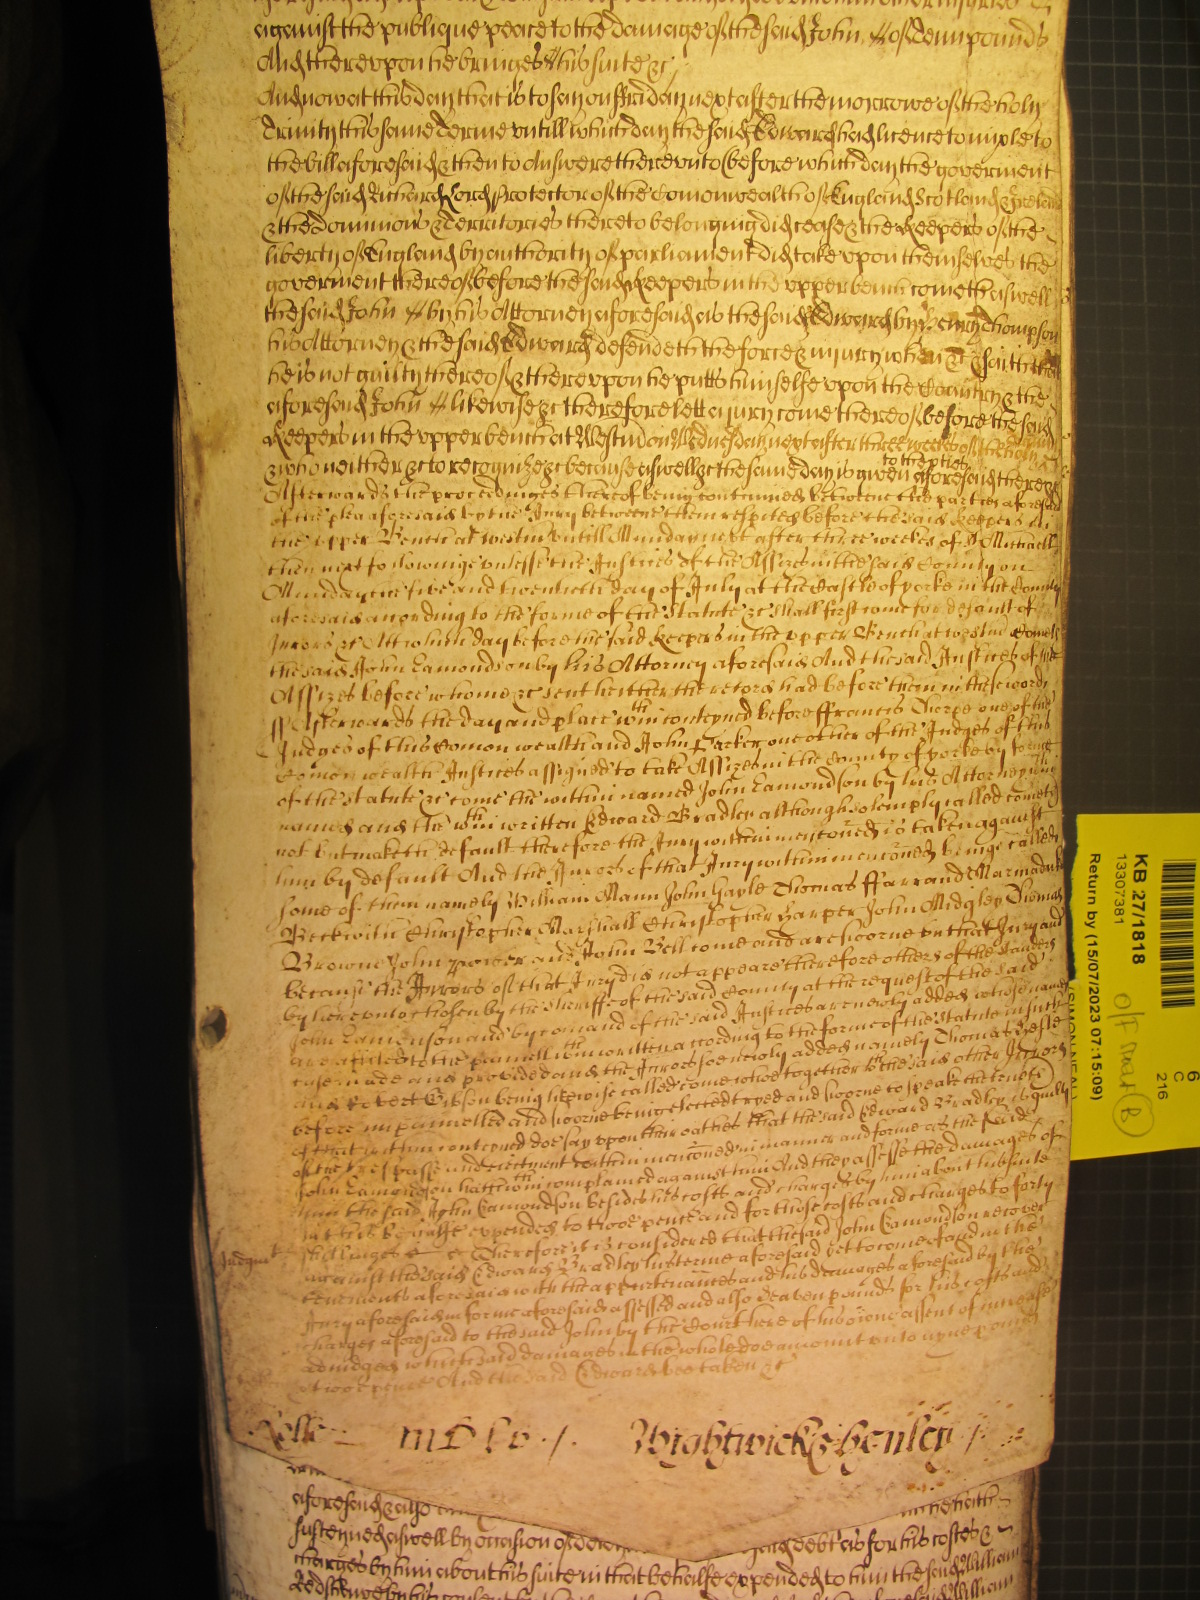 against the publique peace to the damage of the said John of Tenn pounds
And thereupon he bringes this suite &c
And now at this day that is to say on Friday next after the morrowe of the holy
Trinity this same Terme untill which day the said Edward had licence to imple to
the bill aforesaid & then to Answere thereunto before which day the goverment
of the said Richard Lord Protector of the Comonwealth of England Scotland & Ireland
& the Dominions & Territories thereto belonging did cease & the Keepers of the
liberty of England by authority of parliament did take upon themselves the
goverment thereof before the said Keepers in the upper bench cometh aswell
the said John by his Attorney aforesaid as the said Edward by Henry Thompson
his Attorney & the said Edward defendeth the force & injury when &c saith that
he is not guilty thereof & thereupon he putts himselfe upon the Country & the
aforesaid John likewise &c therefore lett a jury come thereof before the said
Keepers in the upper bench at Westm on Wednesday next after three weekes of the holy
& who neither &c to recognize &c because aswell &c the same day is given to the pties aforesaid there &c
Afterwards the proceedinges thereof being continued betweene the parties aforesaid
of the plea aforesaid by the Jury betweene them respited before the said Keepers in
the upper Bench at Westm untill Munday next after three weekes of St Michaell
then next followinge unlesse the Justices of the Assizes in the said County on
Munday the five and twentieth day of July at the Castle of Yorke in the County
aforesaid according to the forme of the Statute &c shall first come for default of
Jurors &c Att which day before the said Keepers in the upper Bench at Westm cometh
the said John Lamondson by his Attorney aforesaid And the said Justices of the
Assizes before whome &c sent heither the record had before them in these words
ss Afterwards the day and place wthin conteyned before Ffrancis Thorpe one of the
Judges of this Comon wealth and John Parker one other of the Judges of this
Comon wealth Justices assigned to take Assizes in the County of Yorke by forme
of the statute &c come the within named John Lamondson by his Attorney wthin
named and the wthin written Edward Bradley although solemply called cometh
not but maketh default therefore the Jury within menconed is taken against
him by default And the Jurors of that Jury within menconed being called
some of them namely William Mann John Gayle Thomas Ffarrand Marmaduke
Beckwith Christopher Marshall Christopher Harper John Midgley Thomas
Browne John and John Bell come and are sworne on that Jury and
because the Jurors of that Jury did not appeare therefore others of the standers
by hereunto chosen by the Sheriffe of the said County at the request of the said
John Lamondson and by comand of the said Justices are newly added whose names
are affiled to the pannell wthin written according to the forme of the Statute in such
case made and provided and the Jurors soe newly added namely Thomas
and Robert Gibson being likewise called come whoe together wth the said other Jurors
before impannelled and sworne being elected tryed and sworne to speake the truth
of that within conteyned doe say upon their oathes that the said Edward Bradley is guilty
of the trespasse and ejectment within menconed in manner and forme as the said
John Lamondson hath wthin complained against him And they assesse the damages of
him the said John Lamondson besides his costs and charges by him about his suite
in this behalfe expended to twoe pence and for those costs and charges to forty
shillinges &c Therefore it is considered that the said John Lamondson recover
Judgmt
against the said Edward Bradley his terme aforesaid yet to come of and in the
tenements aforesaid with the appurtenances and his damages aforesaid by the
Jury aforesaid in forme aforesaid assessed and also seaven pounds for his costs and
charges aforesaid to the said John by the Court here of his owne assent of increase
adiudged which said damages in the whole doe amount unto nyne pounds
& twoe pence And the said Edward bee taken &c
Rolle
Wightwick & Henley
aforesaid & also
susteyned aswell by occasion of debt as for his costes &
charges by him about his suite in that behalfe expended to him the said William
KB 27/1818
13307381
Return by (15/07/2023 07:15:09)
6
C
216